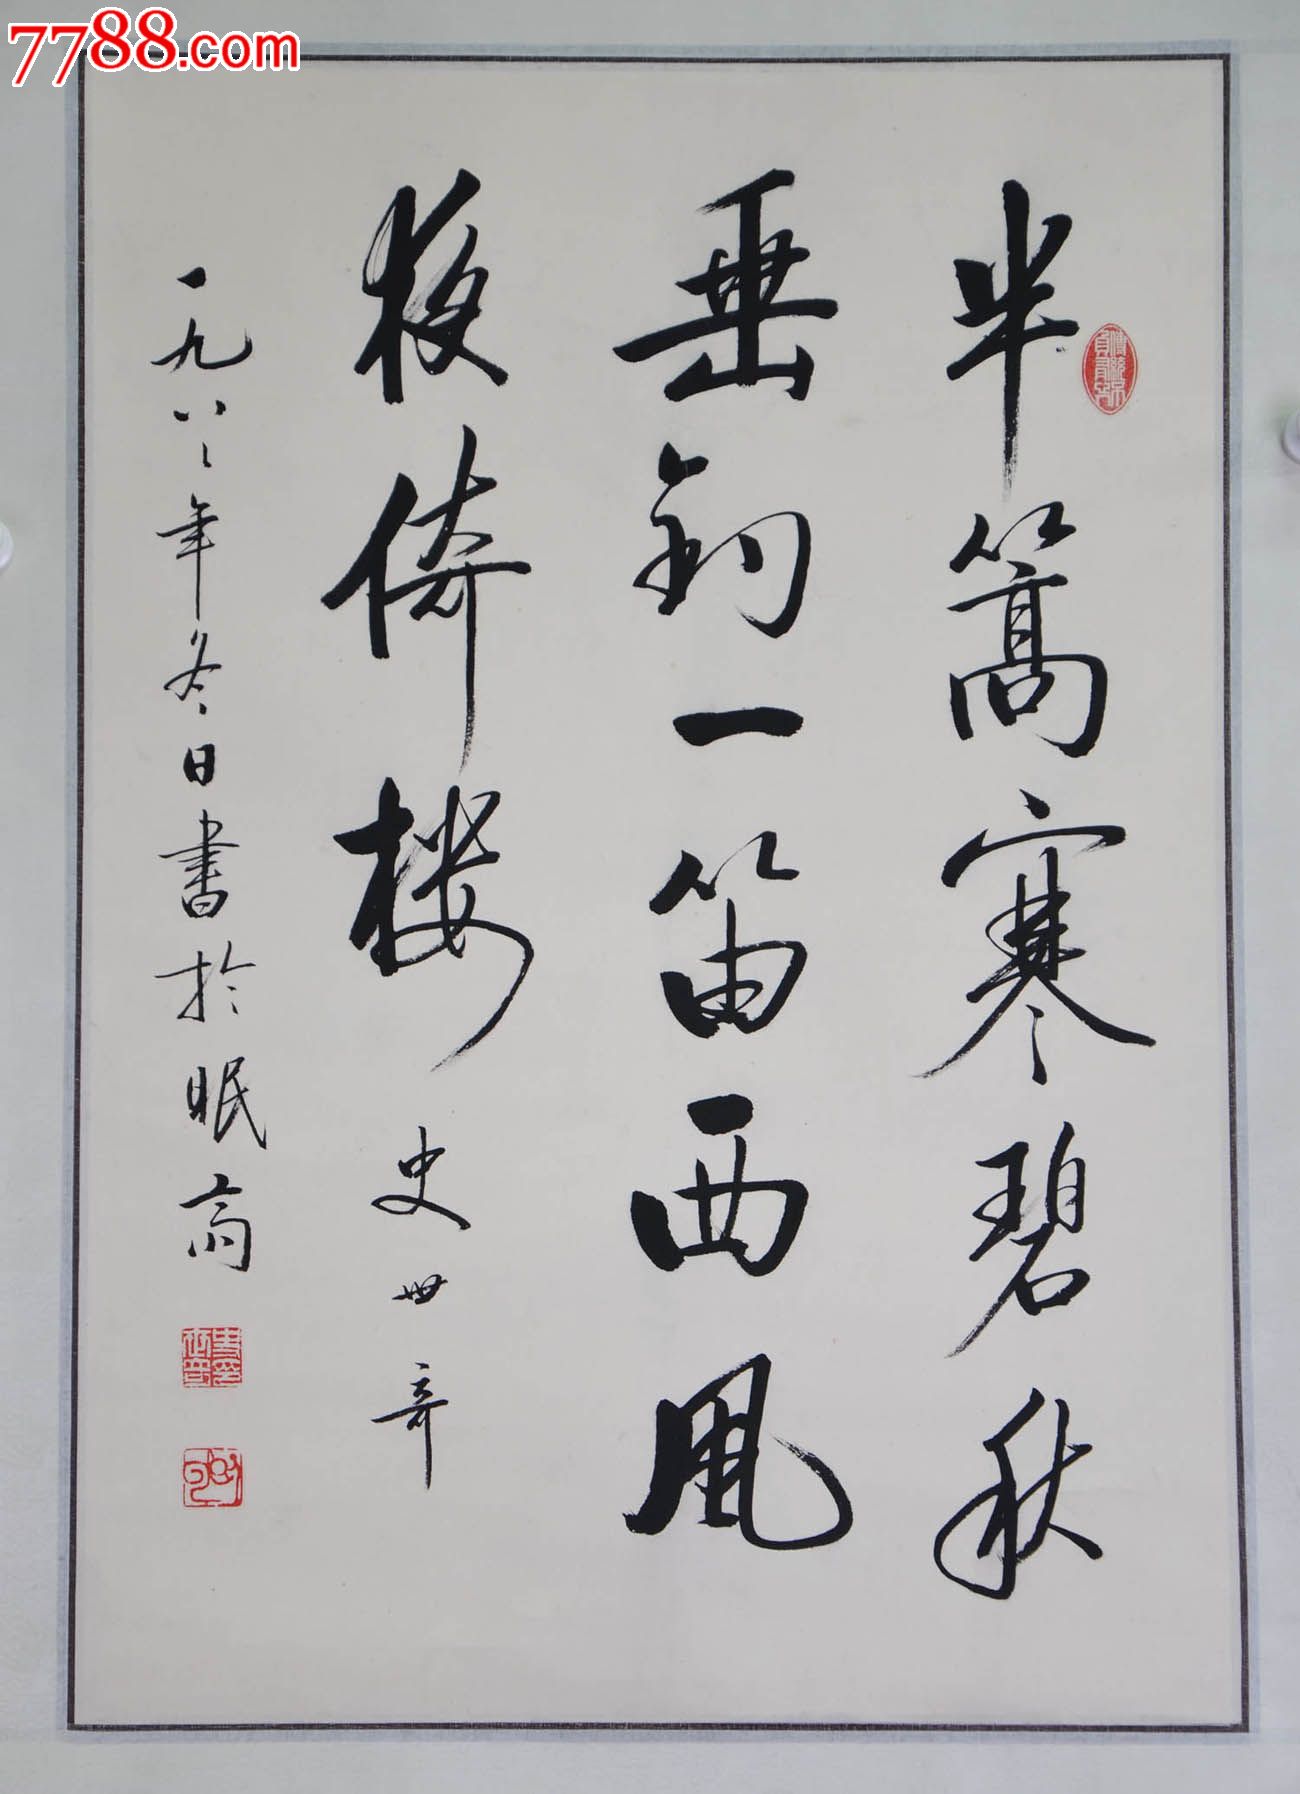 7788.com
半篙寒碧秋
垂钓一笛西风
夜倚楼 史世奇
一九八八年冬日書於眠斋